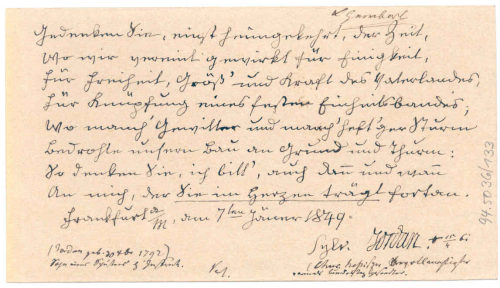 Gedenken Sie, einst heimgekehrt, der Zeit,
Wo wir vereint gewirkt für Einigkeit,
Für Freiheit, Größ' und Kraft des Vaterlandes,
Für Knüpfung eines festen Einheitsbandes;
Wo manch' Gewitter und manch' heft'ger Sturm
Bedrohte unsern Bau an Grund und Thurm:
So denken Sie, ich bitt', auch dann und wann
An mich, der Sie im Herzen trägt fortan.
Frankfurt a/M, am 7ten Jäner 1849.
Sylv. Jordan
(Jordan geb. 30 Dez 1792)
94.50.36/133